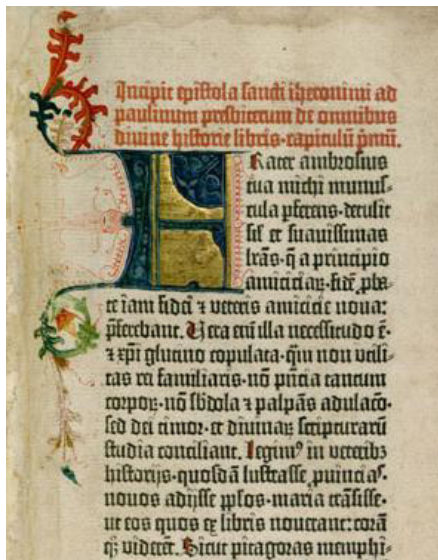 Incipit epistola sancti iheronimi ad
paulinum presbiterum de omnibus
divine historie libris·capitulū p̄mū.
FRater ambrosius
tua michi munus-
cula ꝑferens·detulit
sil̄ et suavissimas
lr̄as·q̄ a principio
amiciciaꝝ·fidē ꝓba-
te iam fidei ⁊ veteris amicicie nova:
p̄ferebant. Vera enī illa necessitudo ē·
⁊ xp̄i glutino copulata·quā non utili-
tas rei familiaris·nō p̄ncia tantum
corpoꝝ·nō s̄bdola ⁊ palpās adulacō·
sed dei timor·et divinaꝝ scripturarū
studia conciliant. Legim⁹ in veteribꝫ
historijs·quosdā lustrasse ꝓuincias·
novos adijsse pp̄los·maria trāsisse·
ut eos quos ex libris noverant: corā
qꝫ viderēt. Sicut pitagoras memphi-